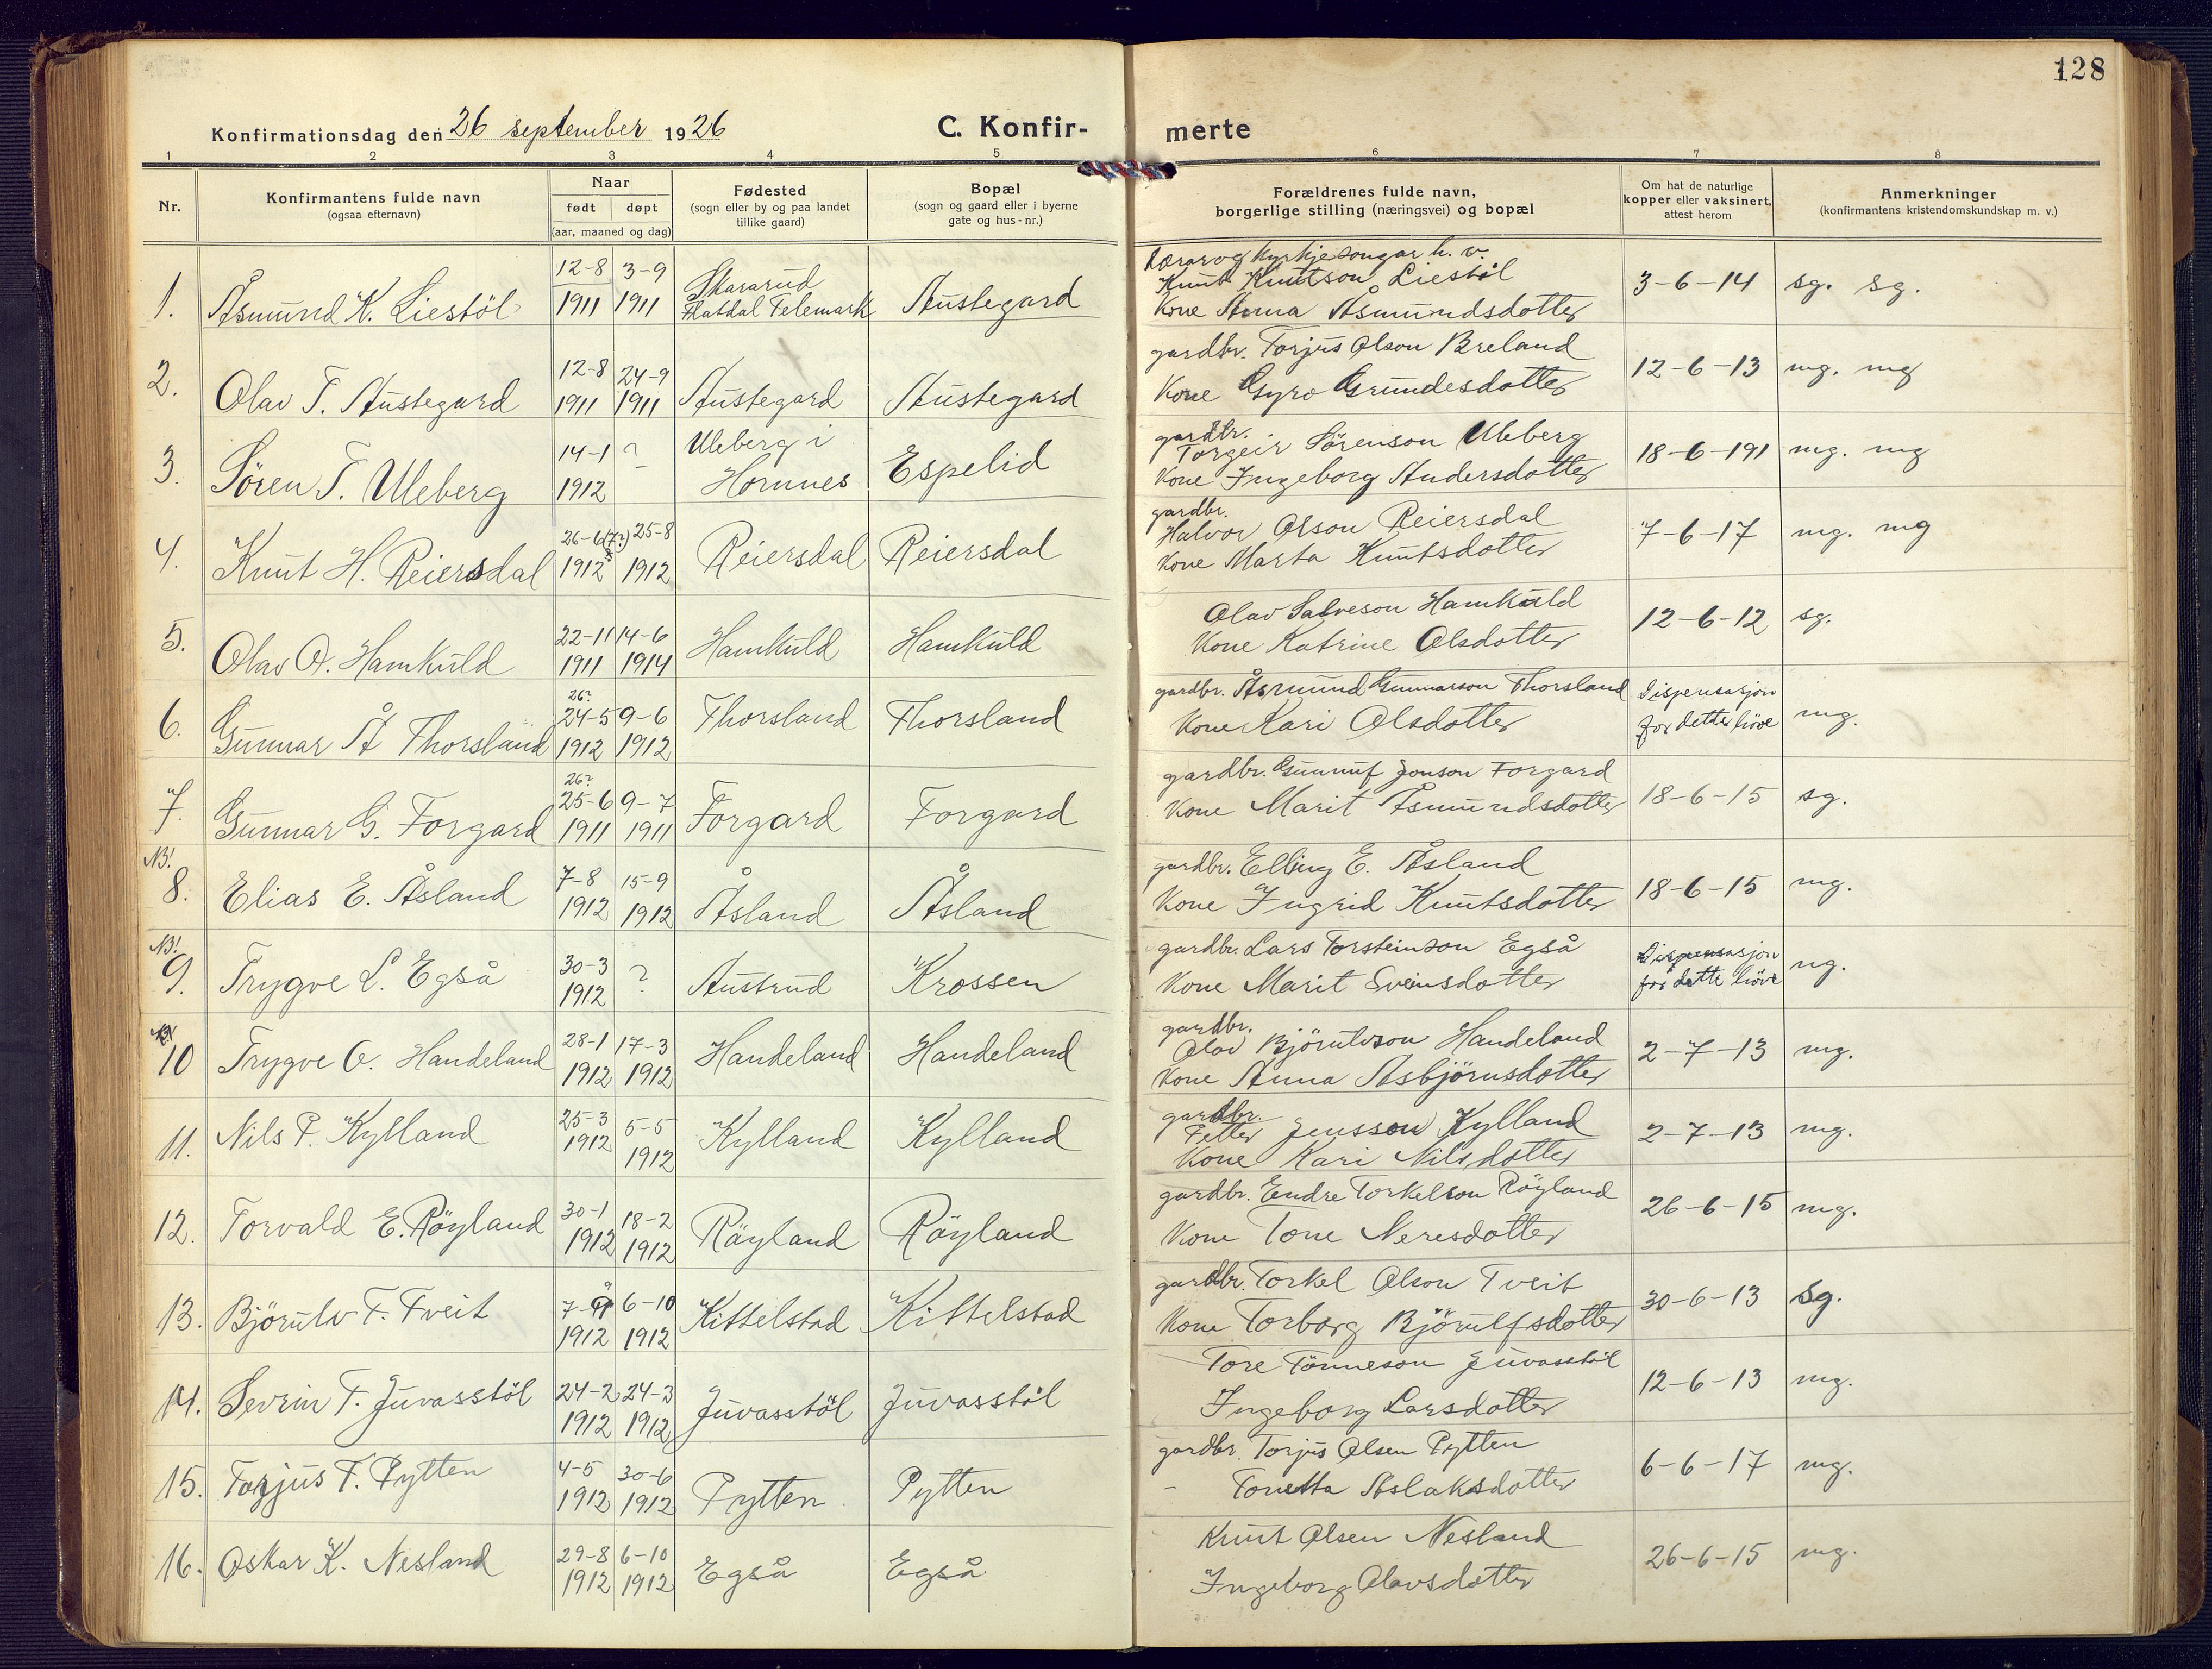 128
Konfirmationsdag den 26 september 1926 C. Konfir- merte
1 2 3 4 5 6 7 8
Nr.
Konfirmantens fulde navn
(ogsaa efternavn)
Naar
født døpt
(aar, maaned og dag)
Fødested
(sogn eller by og paa landet
tillike gaard)
Bopæl
(sogn og gaard eller i byerne
gate og hus-nr.)
Forældrenes fulde navn,
borgerlige stilling (næringsvei) og bopæl
Om hat de naturlige
kopper eller vaksinert,
attest herom
Anmerkninger
(konfirmantens kristendomskundskap m. v.)
Lærar og kyrkjesongar h. v.
12-8 3-9 Skararud Knut Knutson Liestöl
1. Åsmund K. Liestöl 1911 1911 Flatdal Telemark Austegard Kone Anna Åsmundsdotter 3-6-14 sg. sg.
12-8 24-9 gardbr. Torjus Olson Breland
2. Olav T. Austegard 1911 1911 Austegard Austegard Kone Gyro Grundesdotter 12-6-13 mg. mg
gardbr.
14-1 ? Uleberg i Torgeir Sörenson Uleberg
3. Sören T. Uleberg 1912 Hornnes Espelid Kone Ingeborg Andersdotter 18-6-191 mg. mg
gardbr.
26-6(7?) 25-8 Halvor Olson Reiersdal
4. Knut H. Reiersdal 1912 1912 Reiersdal Reiersdal Kone Marta Knutsdotter 7-6-17 mg. mg
22-11 14-6 Olav Salveson Hamkuld
5. Olav O. Hamkuld 1911 1914 Hamkuld Hamkuld Kone Katrine Olsdotter 12-6-12 sg.
26?
24-5 9-6 gardbr. Åsmund Gunnarson Thorsland Dispensasjon
6. Gunnar Å Thorsland 1912 1912 Thorsland Thorsland Kone Kari Olsdotter for dette höve mg.
26?
25-6 9-7 gardbr. Gunnuf Jonson Forgard
7. Gunnar G. Forgard 1911 1911 Forgard Forgard Kone Marit Åsmundsdotter 18-6-15 sg.
NB!
7-8 15-9 gardbr. Elling E. Åsland
8. Elias E. Åsland 1912 1912 Åsland Åsland Kone Ingrid Knutsdotter 18-6-15 mg.
NB!
30-3 ? gardbr. Lars Torsteinson Egså Dispensasjon
9. Trygve L. Egså 1912 Austrud Krossen Kone Marit Sveinsdotter for dette höve ng.
gardbr.
28-1 17-3 Olav Björulvson Handeland
10 Trygve O. Handeland 1912 1912 Handeland Handeland Kone Anna Asbjörnsdotter 2-7-13 mg.
gardbr.
25-3 5-5 Petter Jensson Kylland
11. Nils P. Kylland 1912 1912 Kylland Kylland Kone Kari Nilsdotter 2-7-13 mg.
30-1 18-2 gardbr. Endre Torkelson Röyland
12. Torvald E. Röyland 1912 1912 Röyland Röyland Kone Tone Neresdotter 26-6-15 mg.
9
7- 6-10 gardbr. Torkel Olson Tveit
13. Björulv T. Tveit 1912 1912 Kittelstad Kittelstad Kone Torborg Björulfsdotter 30-6-13 Sg.
24-2 24-3 Tore Tönneson Juvasstöl
14. Sevrin T. Juvasstöl 1912 1912 Juvasstöl Juvasstöl Ingeborg Larsdotter 12-6-13 mg.
4-5 30-6 gardbr. Torjus Olsen Pytten
15. Torjus T. Pytten 1912 1912 Pytten Pytten - Tonetta Aslaksdotter 6-6-17 mg.
29-8 6-10 Knut Olsen Nesland
16. Oskar K. Nesland 1912 1912 Egså Egså Ingeborg Olavsdotter 26-6-15 mg.